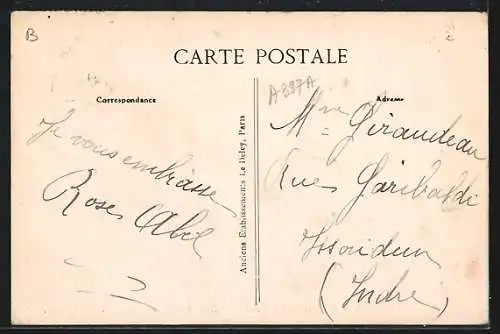 B
CARTE POSTALE
Correspondance
Adresse
A897A
Je vous embrasse
Rose Abel
Mme Giraudeau
Rue Garibaldi
Issoudun
(Indre)
Anciens Etablissements Le Deley, Paris